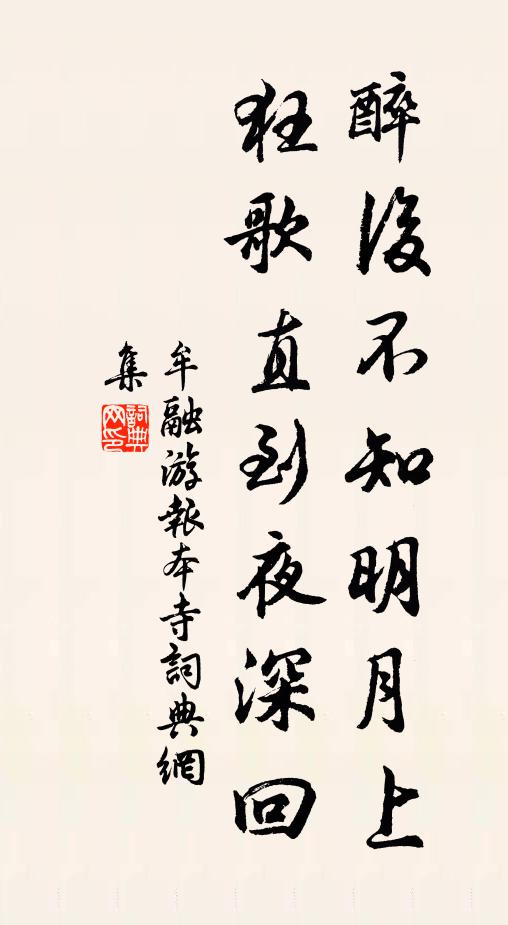 醉後不知明月上
狂歌直到夜深回
牟融游報本寺詞典網
集
詞典
网印